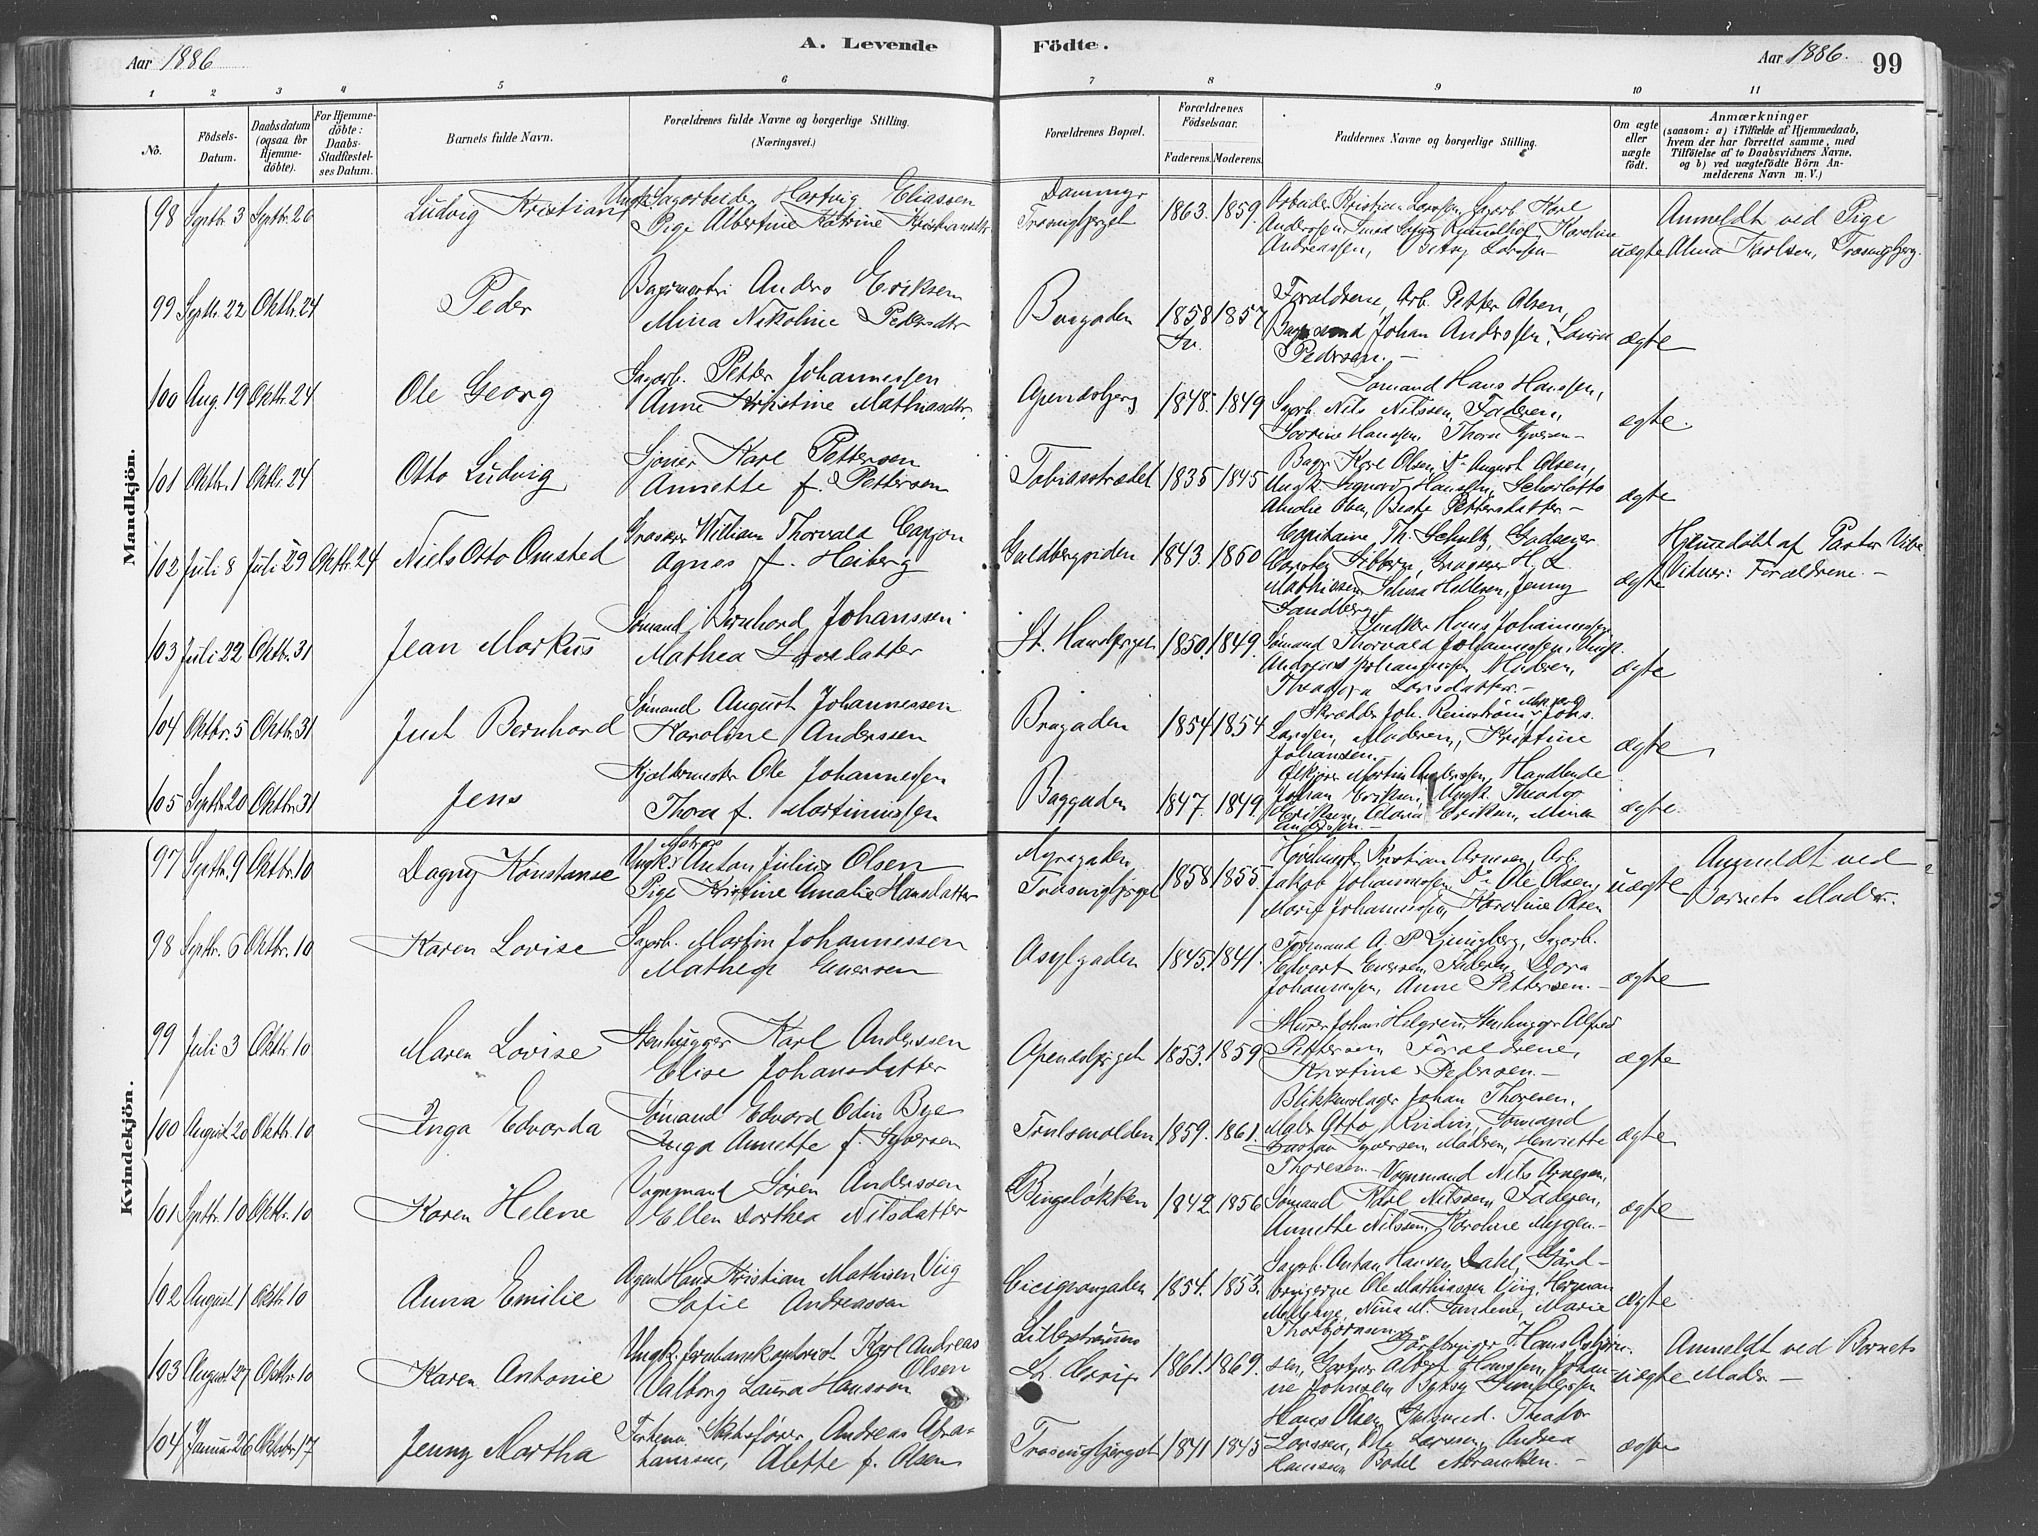 Aar 1886
A. Levende
Födte.
Aar 1886.
99
1 2 3 4 5 6 7 8 9 10 11
No.
Födsels-
Datum.
Daabsdatum
(ogsaa for
Hjemme-
döbte).
For Hjemme-
döbte:
Daabs-
Stadfæstel-
ses Datum.
Barnets fulde Navn.
Forældrenes fulde Navne og borgerlige Stilling.
(Næringsvei.)
Forældrenes Bopæl.
Forældrenes
Födselsaar.
Faderens. Moderens.
Faddernes Navne og borgerlige Stilling.
Om ægte
eller
uægte
födt.
Anmærkninger
(saasom: a) i Tilfælde af Hjemmedaab,
hvem der har forrettet samme, med
Tilföielse af to Daabsvidners Navne,
og b) ved uægtefödte Börn An-
melderens Navn m. V.)
Mandkjön.
98 Septbr. 3 Septbr. 26 Ludvig Kristian
Ungk. Sagarbeider Hartvig Eliassen
Pige Albertine Katrine Kristiansdtr
Dammyr
Trosvigbjerget
1863. 1859.
Arbeider Kristian Larssen, Sagarb. Karl
Anderssen, Karoline
Andreassen, Betsy Larssen
uægte
Anmeldt ved Pige
Alma Karlsen, Trosvigbjerg.
99 Septbr. 22 Oktbr. 24 Peder
Bagermester Anders Eriksen
Mina Nikoline Pedersdtr
Brogaden
1858 1857
Forældrene, Arb. Petter Olsen,
Johan Anderssen, Lovise
Pedersen.
ægte
100 Aug. 19 Oktbr. 24 Ole Georg
Sagarb. Petter Johannessen
Anne Kristine Mathiasdtr.
Apenesbjerg
1848. 1849
Sømand Hans Hanssen,
Sagarb. Nils Nilssen, Faderen,
Lovrine Hanssen, Thora Syversen
ægte.
101 Oktbr. 1 Oktbr. 24 Otto Ludvig
Karl Pettersen
Annette f. Pettersen
Tobiasstrædet
1835 1845
Bager Karl Olsen, Do August Olsen,
Ungk. Hanssen, Scharlotte
Amalie Olsen, Pettersdatter
ægte
102 Juli 8 Juli 29 Oktbr. 24 Niels Otto Omsted
Grosserer William Thorvald Cappon
Agnes f. Heiberg
Guldbergsiden
1843. 1860
Capitaine Th. Schultz, Godseier
Grosserer H. L.
Mathiesen, Jenny
Sandberg.
ægte
Hjemmedøbt af Pastor Vibe
Vidner: Forældrene.
103 Juli 22 Oktbr. 31 Jean Markus
Sømand Bernhard Johanssen
Mathea Larsdatter
St. Hansbjerget
1850. 1849.
Snedker Hans Johannessen,
Sømand Thorvald Johannessen, Ungk.
Andreas Johannessen, Moderen,
Theodora Larsdatter.
ægte
104 Oktbr. 5 Oktbr. 31 Just Bernhard
Sømand August Johannessen
Karoline Anderssen
Brogaden
1854 1854
Skrædder Joh. Johs.
Larssen, Moderen, Kristine
Johansen
ægte
105 Septbr. 20 Oktbr. 31 Jens
Kjeldermester Ole Johannessen
Thora f. Martinussen
Baggaden
1847. 1849.
Martin Anderssen, Handlende
Johan Eriksen, Ungk. Theodor
Eriksen, Maria Eriksen, Mina
Anderssen.
ægte.
Kvindekjön.
97 Septbr. 9 Oktbr. 10 Dagny Konstanse
Ungk. Matros Anton Julius Olsen
Pige Kristine Amalie Hansdatter
Myragaden
Trosvigbjerget
1858 1855
Kristian Arnesen, Arb.
Jakob Johannessen, Do Ole Olsen,
Marie Johannessen, Karoline Olsen
uægte
Anmeldt ved
Barnets Moder.
98 Septbr. 6 Oktbr. 10 Karen Lovise
Sagarb. Martin Johannessen
Mathea Enersen
Asylgaden
1845. 1841.
Formand A. P. Ljungberg, Sagarb.
Edvart Enersen, Faderen, Dora
Johannessen, Anne Pettersen.
ægte
99 Juli 3 Oktbr. 10 Maren Lovise
Stenhugger Karl Anderssen
Elise Johansdatter
Apenesbjerget
1853. 1859
Murer Johan Helgren, Stenhugger Alfred
Pettersen, Forældrene,
Kristine Pedersen.
ægte
100 August 20 Oktbr. 10 Inga Edvarda
Sømand Edvard Odin Bye
Inga Annette f. Syversen
Trulsenolden
1859. 1861.
Blikkenslager Johan Thoresen,
Maler Otto Sømand
Gustav Syversen, Moderen, Henriette
Thoresen.
ægte
101 Septbr. 10 Oktbr. 10 Karen Helene
Vognmand Søren Anderssen
Ellen Dorthea Nilsdatter
Bingsløkken
1842 1856
Vognmand Nils Arnesen,
Sømand Karl Nilssen, Faderen,
Annette Nilssen, Karoline Mygen.
ægte
102 August 1 Oktbr. 10 Anna Emilie
Agent Hans Kristian Mathisen Viig
Sofie Andreassen
Cicignongaden
1854. 1853.
Sagarb. Anton Hansen Dahl, Gård-
brugerne Ole Mathiassen Viig, Herman
Nina M. Marie
Thorbjørnsen
ægte
103 August 27 Oktbr. 10 Karen Antonie
Ungk. Karl Andreas
Olsen
Valborg Laura Hansson
Lillestrømm
1861. 1869.
Hans Asbjørn-
sen, Albert Hanssen, Johan-
ne Johnsen, Betsy Gundersen
uægte
Anmeldt ved Barnets
Moder
104 Januar 26 Oktober 17 Jenny Martha
Skibsfører Andreas Abra-
hamsen, Alette f. Olsen
Trosvigbjerget
1841 1845
Hans Olsen, Theodor
Larssen, Ole Larssen, Andrea
Hanssen, Bodel Abrahamsen.
ægte